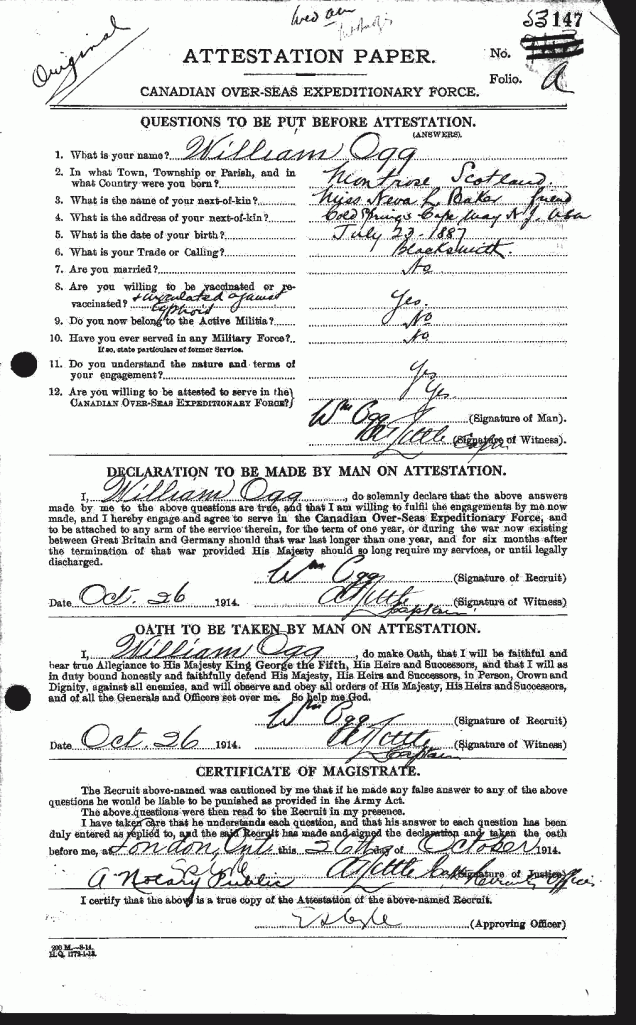 Original
53147
ATTESTATION PAPER.
No.
Folio. A
CANADIAN OVER-SEAS EXPEDITIONARY FORCE.
QUESTIONS TO BE PUT BEFORE ATTESTATION.
(ANSWERS).
1. What is your name? William Ogg
2. In what Town, Township or Parish, and in
what Country were you born? Montrose Scotland.
3. What is the name of your next-of-kin? Miss Neva L Baker friend
4. What is the address of your next-of-kin? Cold Springs Cape May N.J. USA
5. What is the date of your birth? July 23-1887
6. What is your Trade or Calling? Blacksmith.
7. Are you married? No
8. Are you willing to be vaccinated or re-
vaccinated? + inoculated against Yes.
typhoid
9. Do you now belong to the Active Militia? No
10. Have you ever served in any Military Force? No
If so, state particulars of former Service.
11. Do you understand the nature and terms of
your engagement? Yes
12. Are you willing to be attested to serve in the
CANADIAN OVER-SEAS EXPEDITIONARY FORCE? Yes
Wm Ogg (Signature of Man).
(Signature of Witness).
DECLARATION TO BE MADE BY MAN ON ATTESTATION.
I, William Ogg, do solemnly declare that the above answers
made by me to the above questions are true, and that I am willing to fulfil the engagements by me now
made, and I hereby engage and agree to serve in the Canadian Over-Seas Expeditionary Force, and
to be attached to any arm of the service therein, for the term of one year, or during the war now existing
between Great Britain and Germany should that war last longer than one year, and for six months after
the termination of that war provided His Majesty should so long require my services, or until legally
discharged.
Wm Ogg (Signature of Recruit)
Date Oct. 26 1914. (Signature of Witness)
Captain
OATH TO BE TAKEN BY MAN ON ATTESTATION.
I, William Ogg, do make Oath, that I will be faithful and
bear true Allegiance to His Majesty King George the Fifth, His Heirs and Successors, and that I will as
in duty bound honestly and faithfully defend His Majesty, His Heirs and Successors, in Person, Crown and
Dignity, against all enemies, and will observe and obey all orders of His Majesty, His Heirs and Successors,
and of all the Generals and Officers set over me. So help me God.
Wm Ogg (Signature of Recruit)
Date Oct. 26 1914. (Signature of Witness)
Captain
CERTIFICATE OF MAGISTRATE.
The Recruit above-named was cautioned by me that if he made any false answer to any of the above
questions he would be liable to be punished as provided in the Army Act.
The above questions were then read to the Recruit in my presence.
I have taken care that he understands each question, and that his answer to each question has been
duly entered as replied to, and the said Recruit has made and signed the declaration and taken the oath
before me, at London, Ont. this 26th day of October 1914.
(Signature of Justice)
A Notary Public Recruiting Officer
I certify that the above is a true copy of the Attestation of the above-named Recruit.
(Approving Officer)
200 M.—8-14.
H.Q. 1772-1-13.